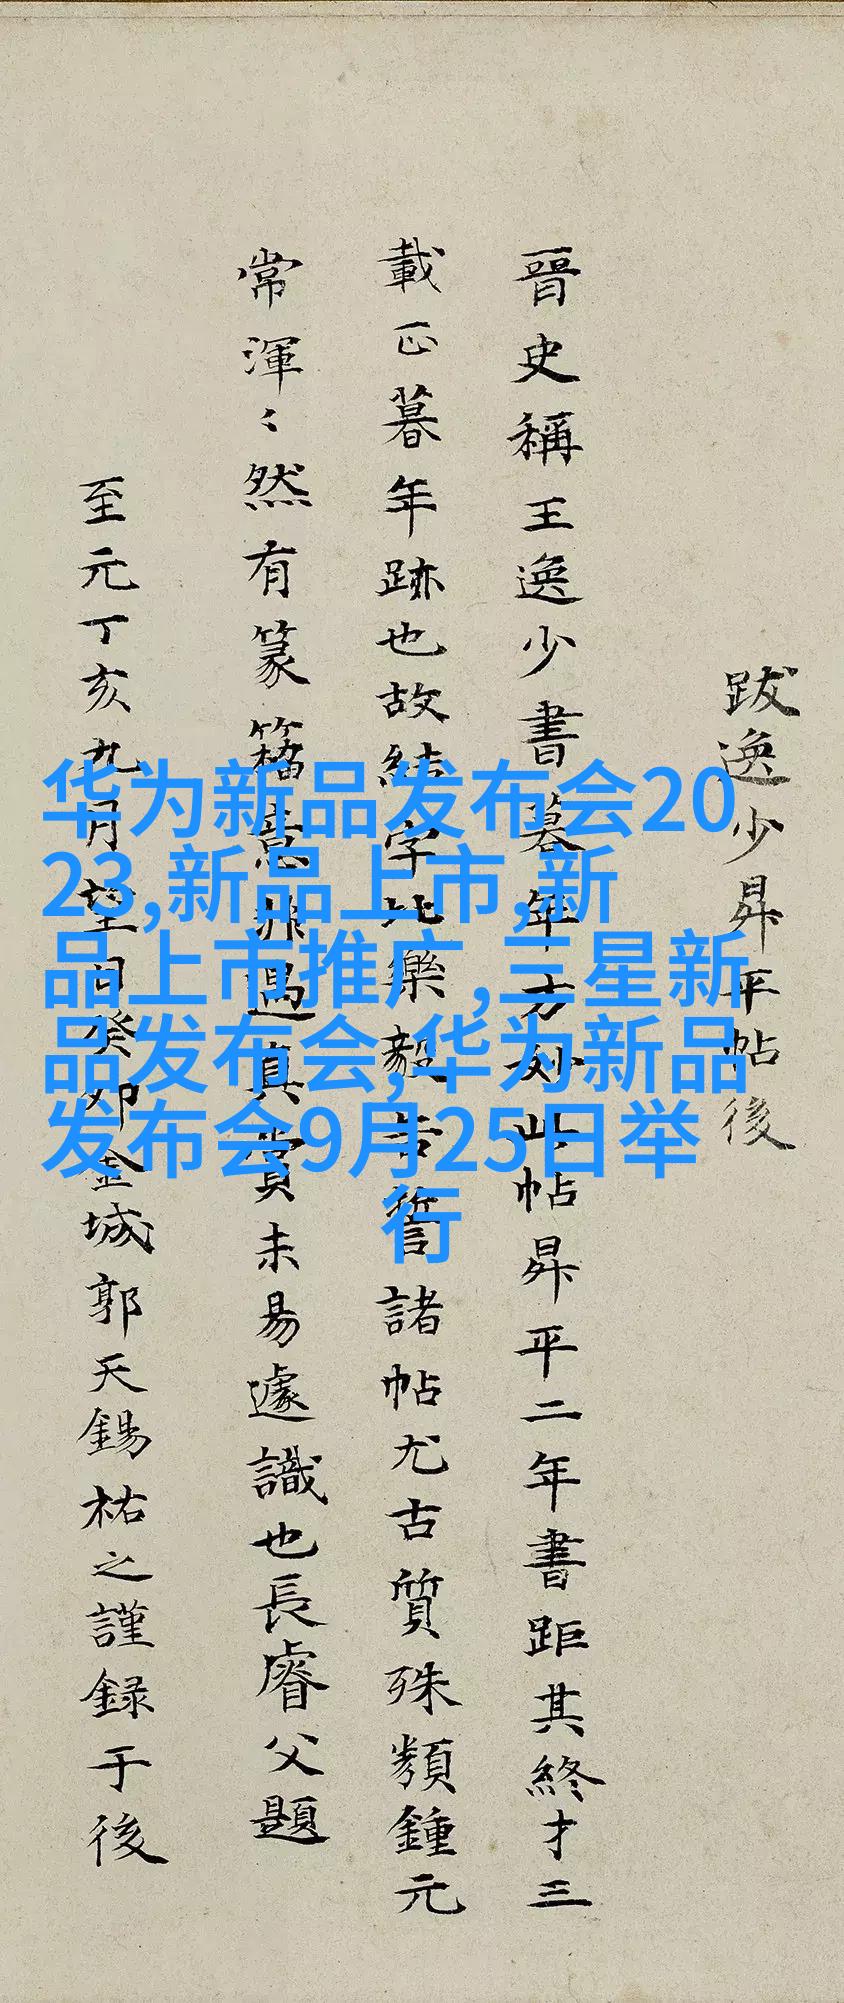 跋逸少昇平帖後
晉史稱王逸少書暮年方妙此帖昇平二年書距其終才三
載正暮年跡也故結字比樂毅告誓諸帖尤古質殊類鍾元
常渾〻然有篆籀意非遇真賞未易遽識也長睿父題
至元丁亥九月望日癸卯金城郭天錫祐之謹録于後
华为新品发布会20
23,新品上市,新
品上市推广,三星新
品发布会,华为新品
发布会9月25日举
行